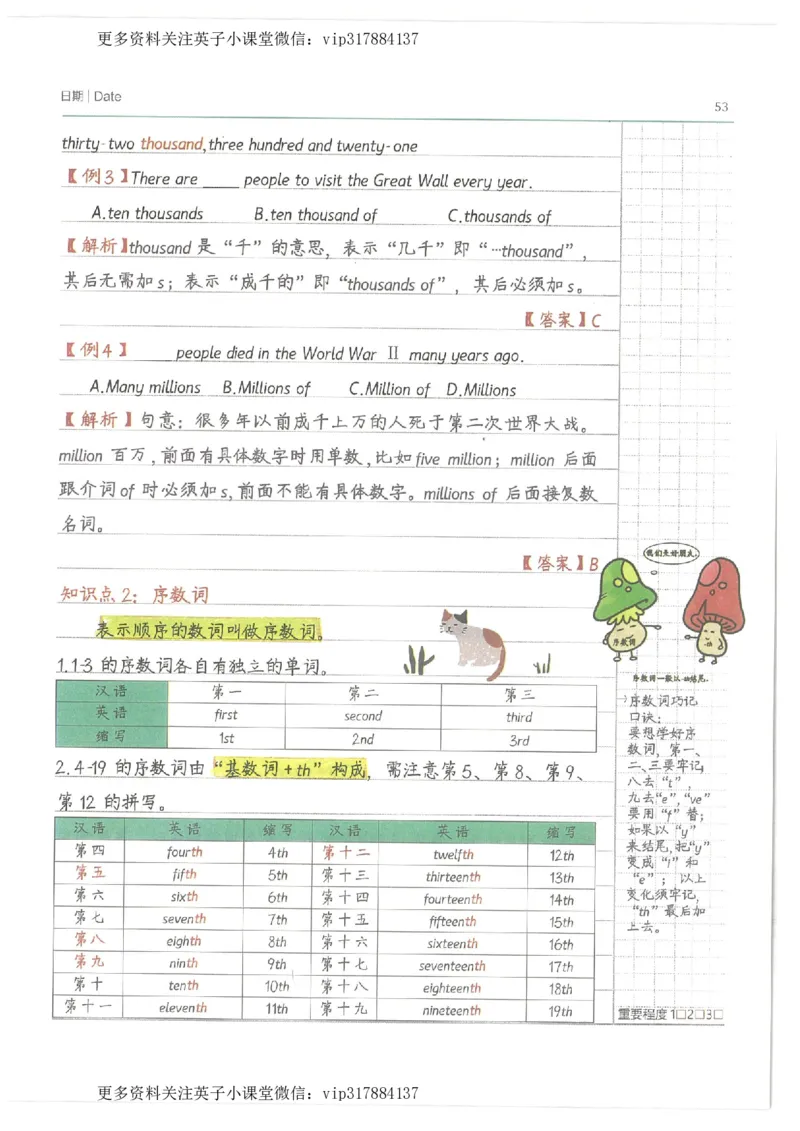 更多资料关注英子小课堂微信：vip317884137
日期 | Date
53
thirty-two thousand, three hundred and twenty-one
【例3】There are ____ people to visit the Great Wall every year.
A.ten thousands B.ten thousand of C.thousands of
【解析】thousand 是“千”的意思，表示“几千”即“…thousand”，
其后无需加 s；表示“成千的”即“thousands of”，其后必须加 s。
【答案】C
【例4】____people died in the World War Ⅱ many years ago.
A.Many millions B.Millions of C.Million of D.Millions
【解析】句意：很多年以前成千上万的人死于第二次世界大战。
million 百万，前面有具体数字时用单数，比如 five million；million 后面
跟介词of 时必须加 s，前面不能有具体数字。millions of 后面接复数
名词。
【答案】B
知识点 2：序数词
表示顺序的数词叫做序数词。
1.1-3 的序数词各自有独立的单词。
汉语 第一 第二 第三
英语 first second third
缩写 1st 2nd 3rd
2.4-19 的序数词由“基数词+th”构成，需注意第5、第8、第9、
第12 的拼写。
汉语 英语 缩写 汉语 英语 缩写
第四 fourth 4th 第十二 twelfth 12th
第五 fifth 5th 第十三 thirteenth 13th
第六 sixth 6th 第十四 fourteenth 14th
第七 seventh 7th 第十五 fifteenth 15th
第八 eighth 8th 第十六 sixteenth 16th
第九 ninth 9th 第十七 seventeenth 17th
第十 tenth 10th 第十八 eighteenth 18th
第十一 eleventh 11th 第十九 nineteenth 19th
我们是好朋友。
序数词
th
序数词一般以th结尾。
→序数词巧记
口诀：
要想学好序
数词，第一、
二、三要牢记，
八去“t”，
九去“e”，“ve”
要用“f”替；
如果以“y”
来结尾，把“y”
变成“i”和
“e”；以上
变化须牢记，
“th”最后加
上去。
重要程度 1□2□3□
更多资料关注英子小课堂微信：vip317884137